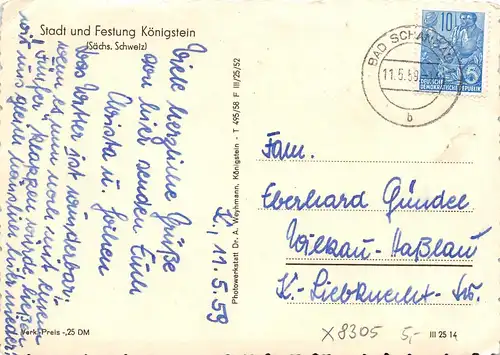 Stadt und Festung Königstein
(Sächs. Schweiz)
K., 11.5.59
Viele herzliche Grüße
von hier senden Euch
Christa u.
Das Wetter ist wunderbar,
wenn es nun noch mit einem
klappen würde
Verk.-Preis -,25 DM
Photowerkstatt Dr. A. Weyhmann, Königstein - T 495/58 F III/25/52
BAD SCHANDAU
11.5.59
b
10
DEUTSCHE
DEMOKRATISCHE REPUBLIK
Fam.
Eberhard Gündel
Wilkau-Haßlau
K.-Liebknecht-Str.
X8305 5,-
III 25 14